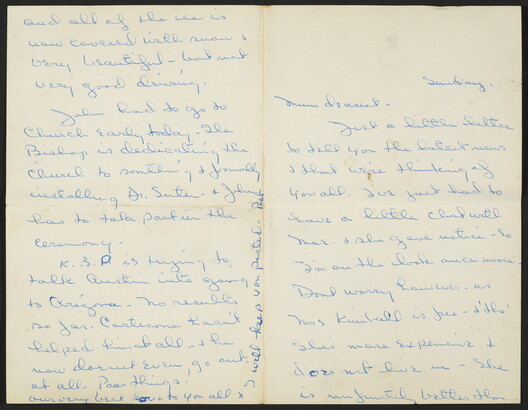 Sunday.
Mum dearest -
Just a little letter
to tell you the latest news
& that we're thinking of
you all. I've just had to
have a little chat with
Mae & she gave notice - So
I'm on the look once more
Dont worry however - as
Mrs Kimball is free - & tho'
she's more expensive &
does not live in - She
is infinitely better than
and all of the ice is
now covered with snow &
very beautiful - but not
very good driving.
John had to go to
Church early today - The
Bishop is dedicating the
Church to something & formally
installing Dr. Suter - & John
has to take part in the
ceremony.
K. B. is trying to
talk Austin into going
to Arizona - No results
so far. Cortisone hasn't
helped him at all - & he
now doesn't even, go out
at all. Poor things!
our very best love to you all &
I will keep you posted.